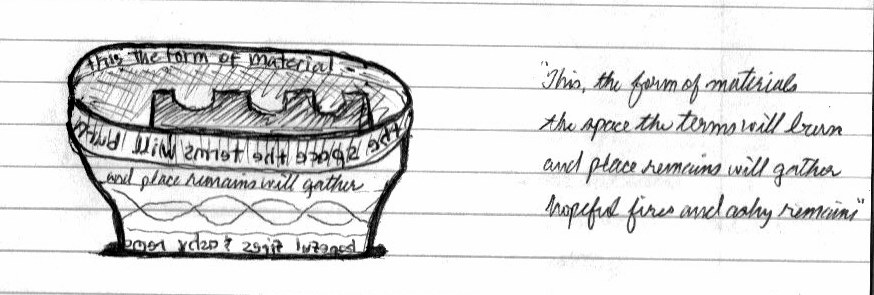 this the form of material
the space the terms will burn
and place remains will gather
hopeful fires & ashy rema
"This, the form of materials
the space the terms will burn
and place remains will gather
hopeful fires and ashy remains"